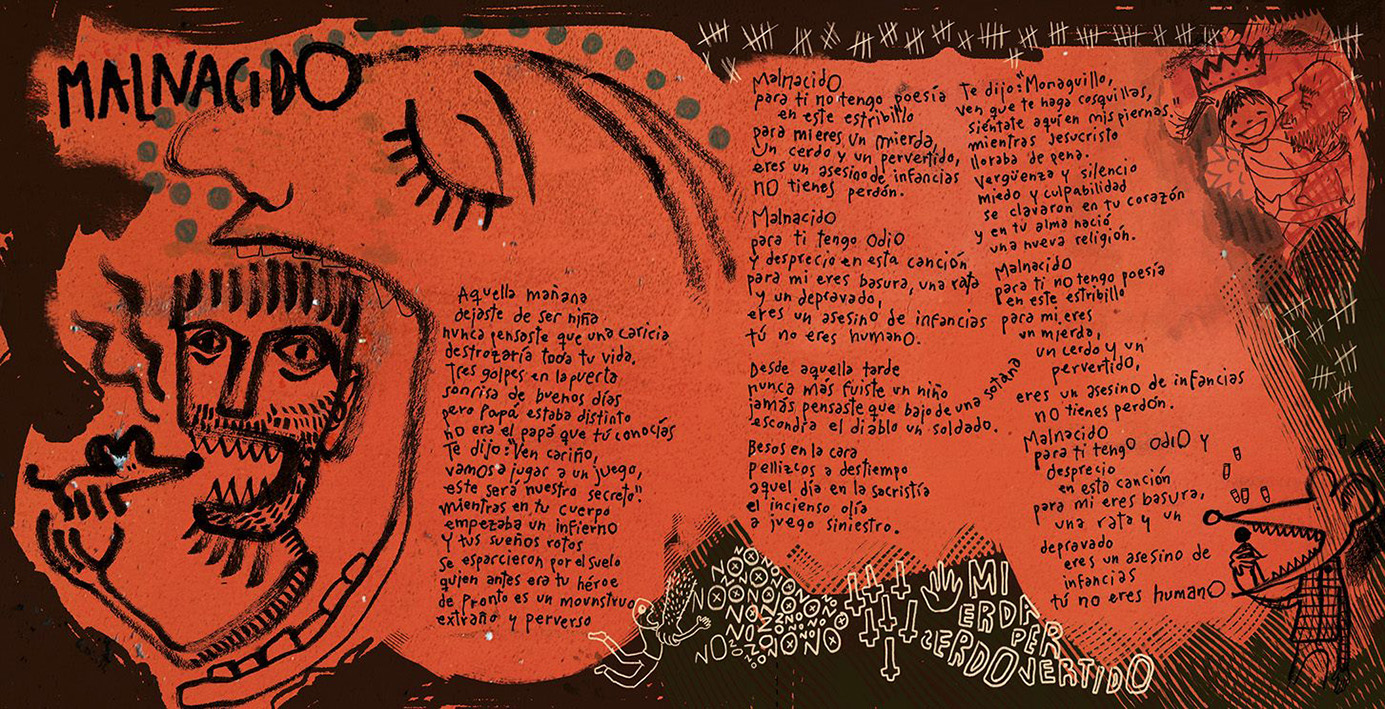 MALNACIDO
Aquella mañana
dejaste de ser niña
nunca pensaste que una caricia
destrozaría toda tu vida.
Tres golpes en la puerta
sonrisa de buenos días
pero Papá estaba distinto
no era el papá que tú conocías
Te dijo: "Ven cariño,
vamos a jugar a un juego,
este será nuestro secreto".
mientras en tu cuerpo
empezaba un infierno
Y tus sueños rotos
se esparcieron por el suelo
quien antes era tu héroe
de pronto es un mounstruo
extraño y perverso
Malnacido
para ti no tengo poesía
en este estribillo
para mi eres un mierda,
un cerdo y un pervertido,
eres un asesino de infancias
no tienes perdón.
Malnacido
para ti tengo odio
y desprecio en esta canción
para mi eres basura, una rata
y un depravado,
eres un asesino de infancias
tú no eres humano.
Desde aquella tarde
nunca más fuiste un niño
jamás pensaste que bajo de una sotana
escondía el diablo un soldado.
Besos en la cara
pellizcos a destiempo
aquel día en la sacristía
el incienso olía
a juego siniestro.
Te dijo: "Monaguillo,
ven que te haga cosquillas,
siéntate aquí en mis piernas."
mientras Jesucristo
lloraba de pena.
vergüenza y silencio
miedo y culpabilidad
se clavaron en tu corazón
y en tu alma nació
una nueva religión.
Malnacido
para ti no tengo poesía
en este estribillo
para mi eres
un mierda,
un cerdo y un
pervertido,
eres un asesino de infancias
no tienes perdón.
Malnacido
para ti tengo odio y
desprecio
en esta canción
para mi eres basura,
una rata y un
depravado
eres un asesino de
infancias
tú no eres humano
NO NO NO
MI
ERDA
PER
CERDO VERTIDO